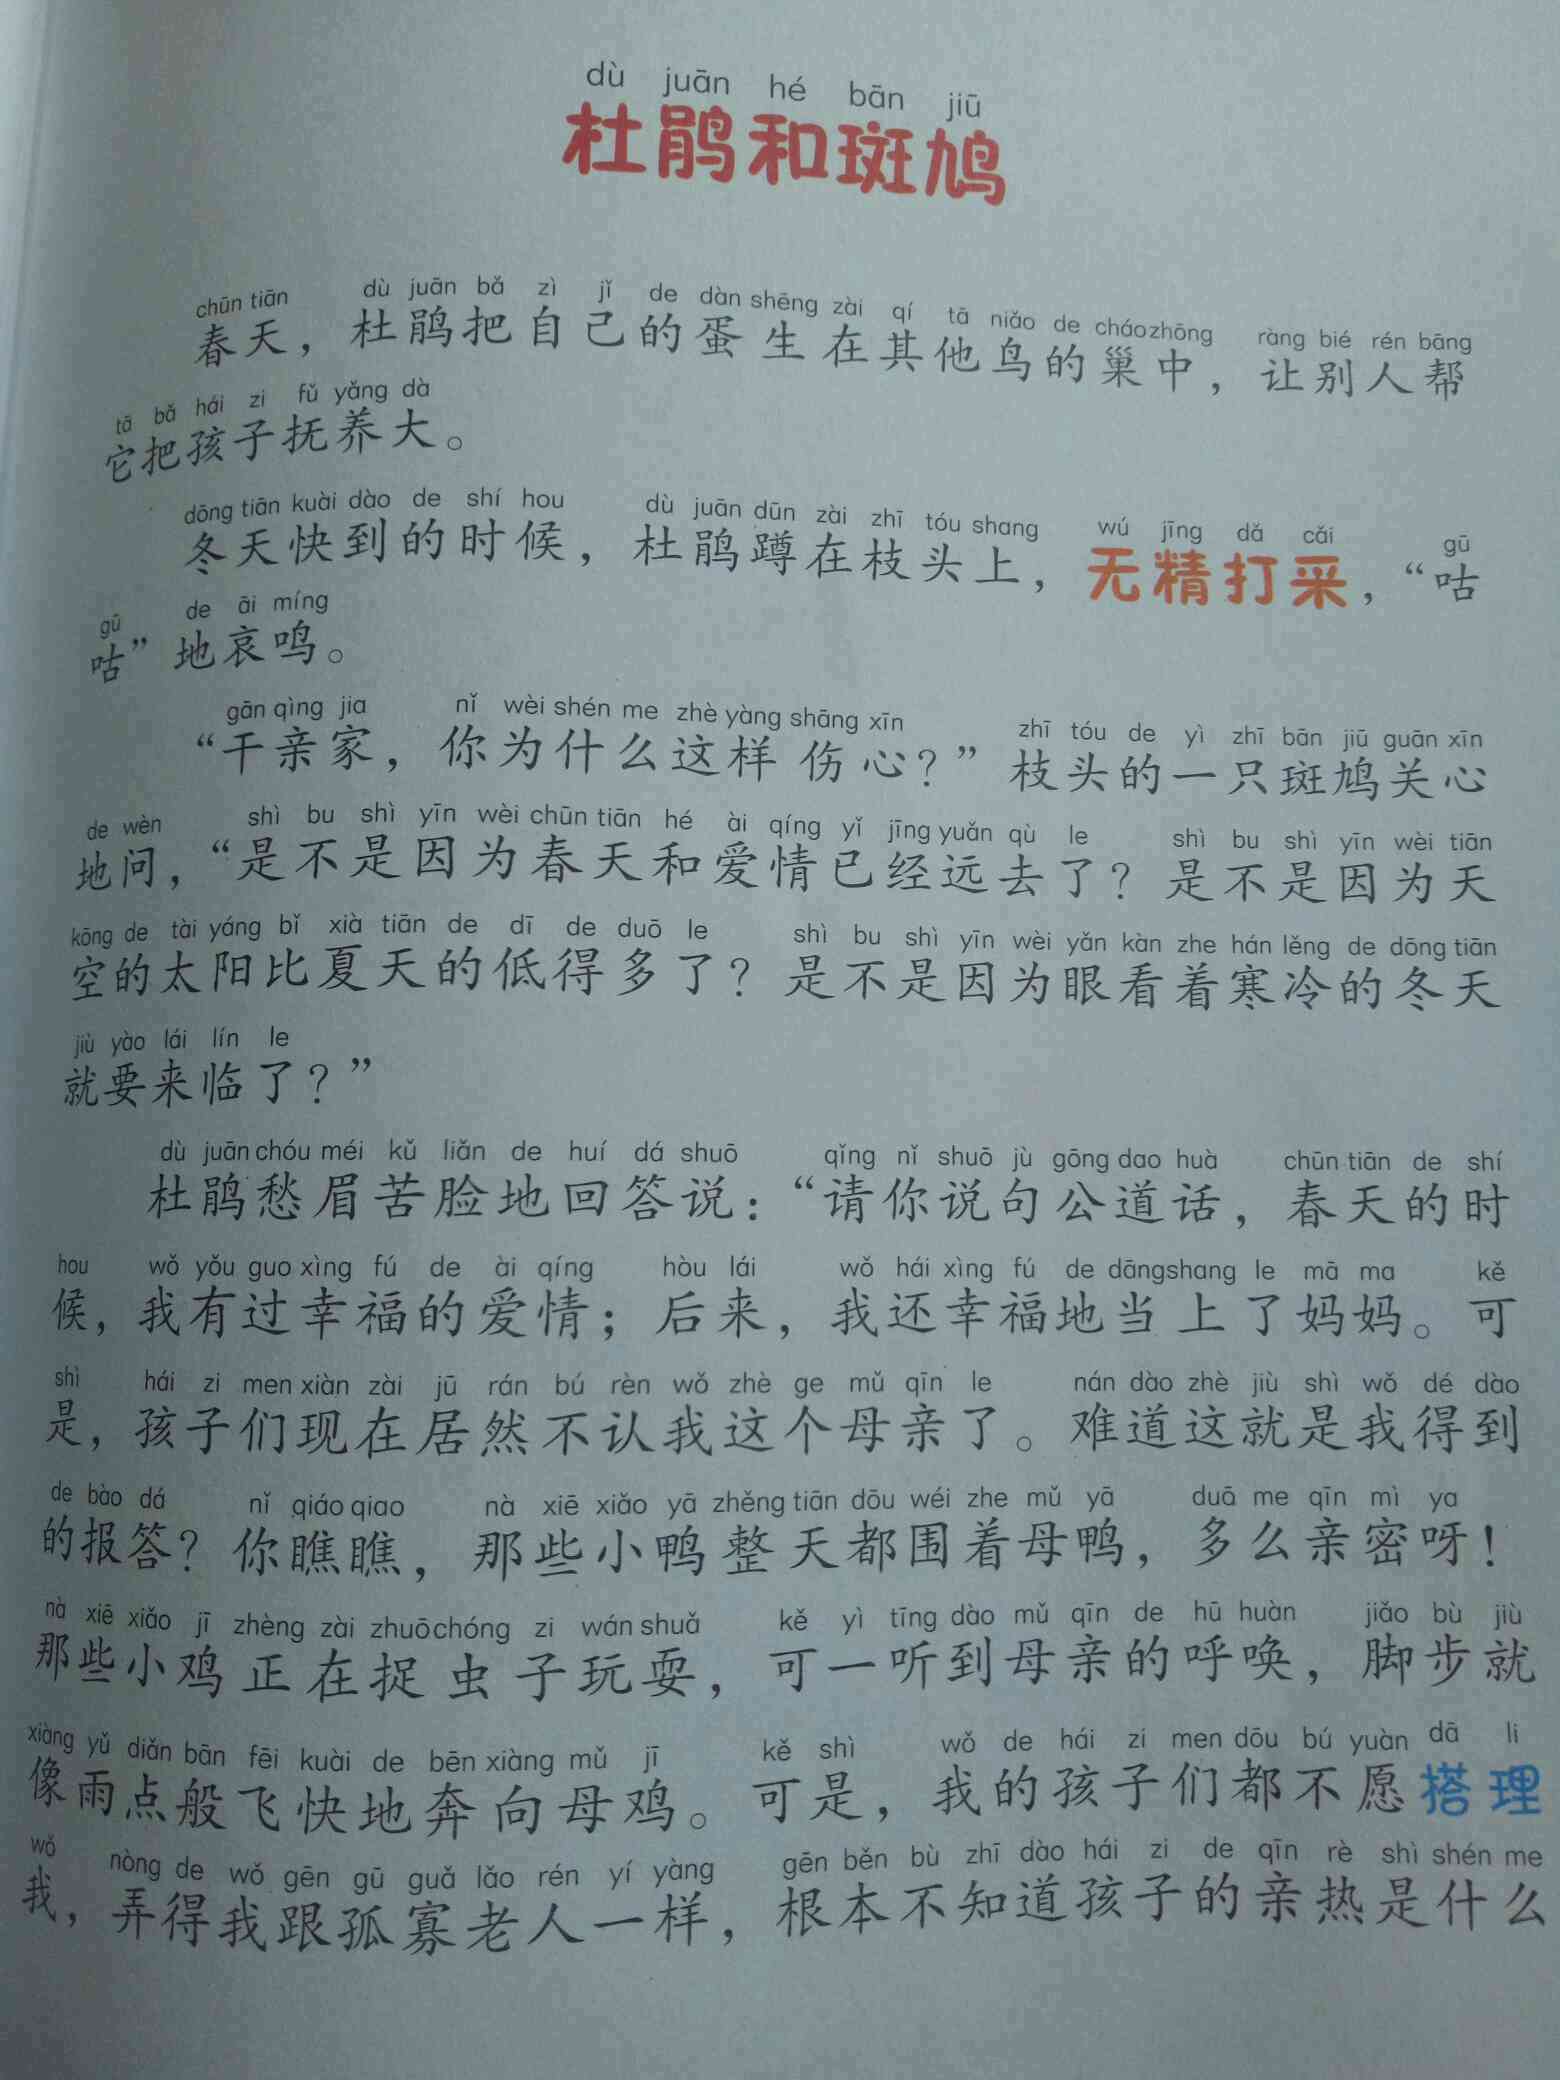 dù juān hé bān jiū
杜鹃和斑鸠
chūn tiān dù juān bǎ zì jǐ de dàn shēng zài qí tā niǎo de cháo zhōng ràng bié rén bāng
春天，杜鹃把自己的蛋生在其他鸟的巢中，让别人帮
tā bǎ hái zi fǔ yǎng dà
它把孩子抚养大。
dōng tiān kuài dào de shí hou dù juān dūn zài zhī tóu shang wú jīng dǎ cǎi gū
冬天快到的时候，杜鹃蹲在枝头上，无精打采，“咕
gū de āi míng
咕”地哀鸣。
gān qìng jia nǐ wèi shén me zhè yàng shāng xīn zhī tóu de yì zhī bān jiū guān xīn
“干亲家，你为什么这样伤心？”枝头的一只斑鸠关心
de wèn shì bu shì yīn wèi chūn tiān hé ài qíng yǐ jīng yuǎn qù le shì bu shì yīn wèi tiān
地问，“是不是因为春天和爱情已经远去了？是不是因为天
kōng de tài yáng bǐ xià tiān de dī de duō le shì bu shì yīn wèi yǎn kàn zhe hán lěng de dōng tiān
空的太阳比夏天的低得多了？是不是因为眼看着寒冷的冬天
jiù yào lái lín le
就要来临了？”
dù juān chóu méi kǔ liǎn de huí dá shuō qǐng nǐ shuō jù gōng dao huà chūn tiān de shí
杜鹃愁眉苦脸地回答说：“请你说句公道话，春天的时
hou wǒ yǒu guo xìng fú de ài qíng hòu lái wǒ hái xìng fú de dāng shang le mā ma kě
候，我有过幸福的爱情；后来，我还幸福地当上了妈妈。可
shì hái zi men xiàn zài jū rán bú rèn wǒ zhè ge mǔ qīn le nán dào zhè jiù shì wǒ dé dào
是，孩子们现在居然不认我这个母亲了。难道这就是我得到
de bào dá nǐ qiáo qiao nà xiē xiǎo yā zhěng tiān dōu wéi zhe mǔ yā duō me qīn mì ya
的报答？你瞧瞧，那些小鸭整天都围着母鸭，多么亲密呀！
nà xiē xiǎo jī zhèng zài zhuō chóng zi wán shuǎ kě yì tīng dào mǔ qīn de hū huàn jiǎo bù jiù
那些小鸡正在捉虫子玩耍，可一听到母亲的呼唤，脚步就
xiàng yǔ diǎn bān fēi kuài de bēn xiàng mǔ jī kě shì wǒ de hái zi men dōu bú yuàn dā li
像雨点般飞快地奔向母鸡。可是，我的孩子们都不愿搭理
wǒ nòng de wǒ gēn gū guǎ lǎo rén yí yàng gēn běn bù zhī dào hái zi de qīn rè shì shén me
我，弄得我跟孤寡老人一样，根本不知道孩子的亲热是什么